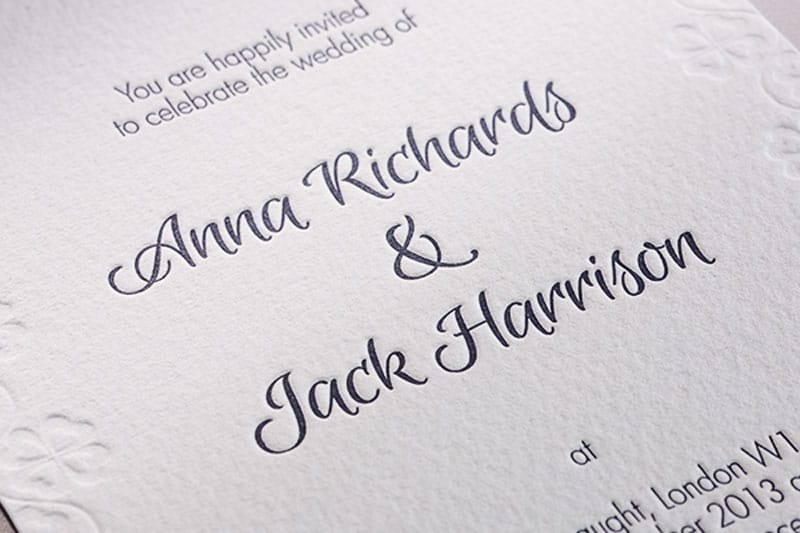 You are happily invited
to celebrate the wedding of
Anna Richards
&
Jack Harrison
at
London W1
2013